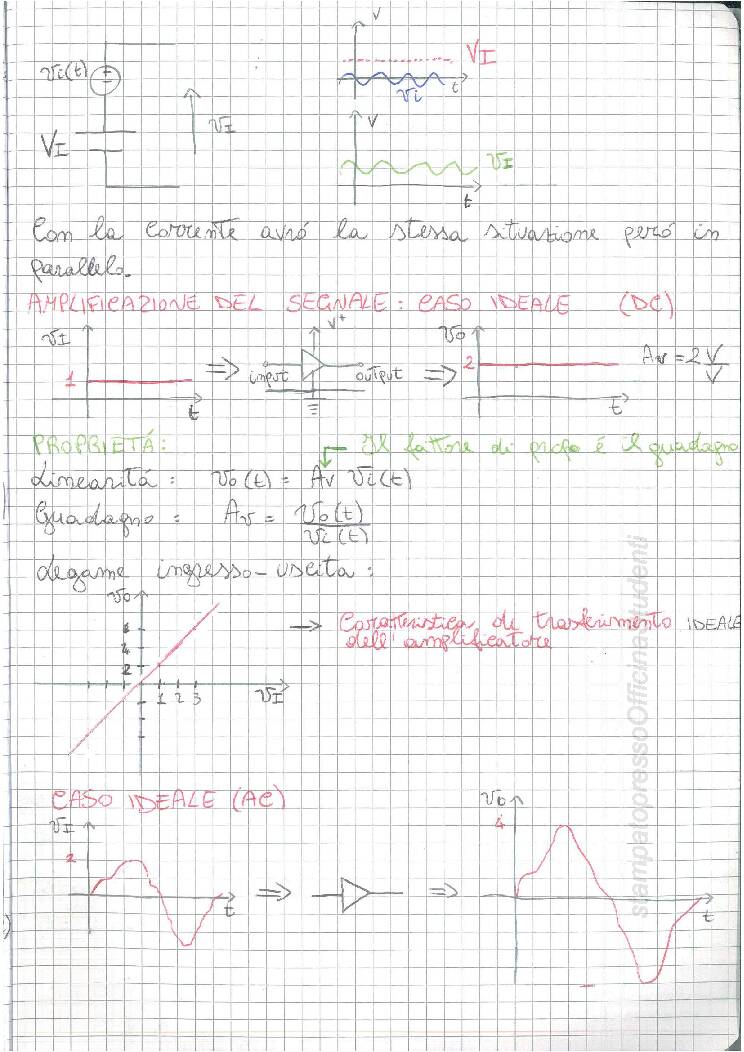 V
vi(t)
VI
vi
t
VI
vI
V
vI
t
Con la corrente avró la stessa situazione peró in
parallelo.
AMPLIFICAZIONE DEL SEGNALE: CASO IDEALE (DC)
vI
1
t
⇒
V+
input
output
⇒
vo
2
t
Av = 2 V/V
PROPRIETÁ:
Il fattore di prop é il guadagno
Linearitá : vo(t) = Av vi(t)
Guadagno : Av = vo(t)
vi(t)
Legame ingresso-uscita :
vo
6
4
2
1 2 3
vI
→ Caratteristica di trasferimento IDEALE
dell' amplificatore
CASO IDEALE (AC)
vI
2
t
⇒
⇒
vo
4
t
stampatopressoOfficinastudenti